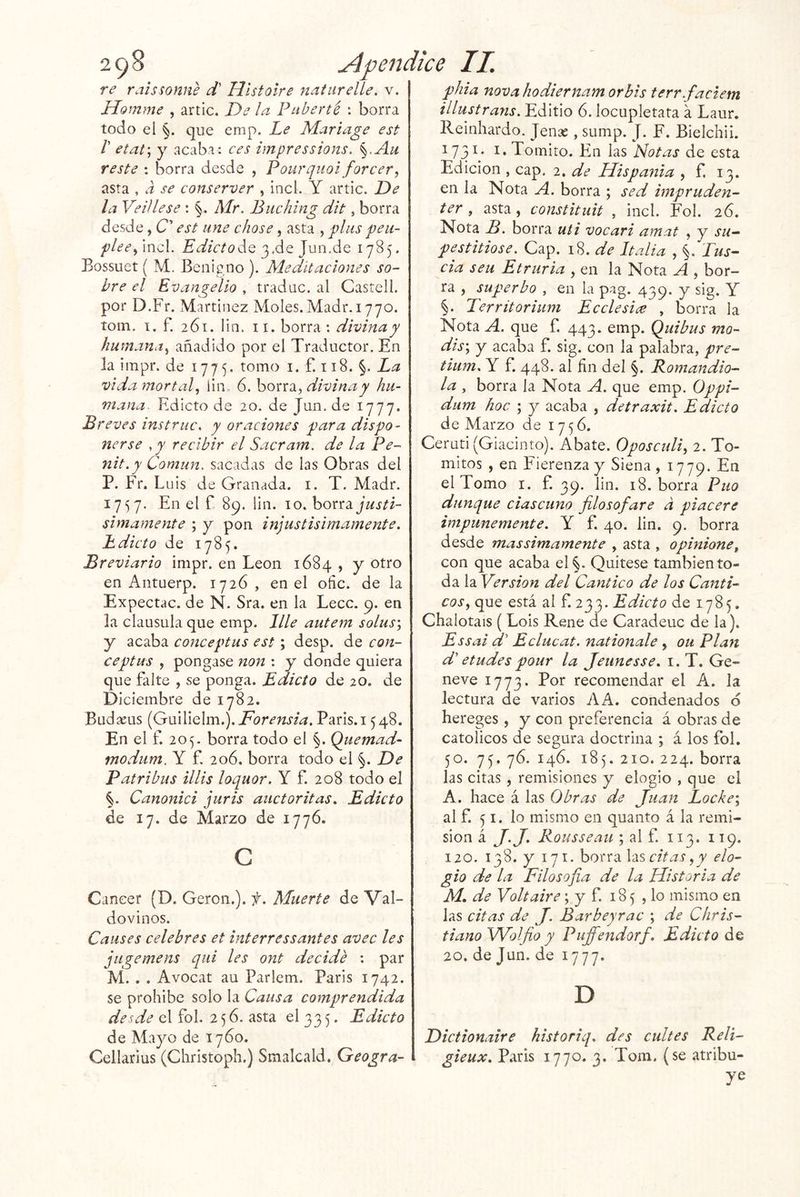 298 Apendice II.
re raissonnè d' Histoire naturelle. v.
Homme , artic. De la Puberté : borra
todo el §. que emp. Le Mariage est
l' etat; y acaba: ces impressions. §. Au
reste : borra desde , Pourquoi forcer,
asta , à se conserver , incl. Y artic. De
la Veillese : §. Mr. Buching dit , borra
desde , C' est une chose , asta , plus peu-
plee, incl. Edicto de 3.de Jun.de 1785.
Bossuet ( M. Benigno ). Meditaciones so-
bre el Evangelio , traduc. al Castell.
por D.Fr. Martinez Moles. Madr.1770.
tom. 1. f. 261. lin. 11. borra : divina y
humana, añadido por el Traductor. En
la impr. de 1775. tomo 1. f. 118. §. La
vida mortal, lin. 6. borra, divina y hu-
mana. Edicto de 20. de Jun. de 1777.
Breves instruc. y oraciones para dispo-
nerse , y recibir el Sacram. de la Pe-
nit. y Comun. sacadas de las Obras del
P. Fr. Luis de Granada. 1. T. Madr.
1757. En el f. 89. lin. 10. borra justi-
simamente ; y pon injustisimamente.
Edicto de 1785.
Breviario impr. en Leon 1684 , y otro
en Antuerp. 1726 , en el ofic. de la
Expectac. de N. Sra. en la Lecc. 9. en
la clausula que emp. Ille autem solus;
y acaba conceptus est ; desp. de con-
ceptus , pongase non : y donde quiera
que falte , se ponga. Edicto de 20. de
Diciembre de 1782.
Budæus (Guilielm.). Forensia. Paris. 1548.
En el f. 205. borra todo el §. Quemad-
modum. Y f. 206. borra todo el §. De
Patribus illis loquor. Y f. 208 todo el
§. Canonici juris auctoritas. Edicto
de 17. de Marzo de 1776.
C
Cancer (D. Geron.). ɟ. Muerte de Val-
dovinos.
Causes celebres et interressantes avec les
jugemens qui les ont decidè : par
M. . . Avocat au Parlem. Paris 1742.
se prohibe solo la Causa comprendida
desde el fol. 256. asta el 335. Edicto
de Mayo de 1760.
Cellarius (Christoph.) Smalcald. Geogra-
phia nova hodiernam orbis terr. faciem
illustrans. Editio 6. locupletata à Laur.
Reinhardo. Jenæ , sump. J. F. Bielchii.
1731. 1. Tomito. En las Notas de esta
Edicion , cap. 2. de Hispania , f. 13.
en la Nota A. borra ; sed impruden-
ter , asta , constituit , incl. Fol. 26.
Nota B. borra uti vocari amat , y su-
pestitiose. Cap. 18. de Italia , §. Tus-
cia seu Etruria , en la Nota A , bor-
ra , superbo , en la pag. 439. y sig. Y
§. Territorium Ecclesiæ , borra la
Nota A. que f. 443. emp. Quibus mo-
dis; y acaba f. sig. con la palabra, pre-
tium. Y f. 448. al fin del §. Romandio-
la , borra la Nota A. que emp. Oppi-
dum hoc ; y acaba , detraxit. Edicto
de Marzo de 1756.
Ceruti (Giacinto). Abate. Oposculi, 2. To-
mitos , en Fierenza y Siena , 1779. En
el Tomo 1. f. 39. lin. 18. borra Puo
dunque ciascuno filosofare à piacere
impunemente. Y f. 40. lin. 9. borra
desde massimamente , asta , opinione,
con que acaba el §. Quitese tambien to-
da la Version del Cantico de los Canti-
cos, que está al f. 233. Edicto de 1785.
Chalotais ( Lois Rene de Caradeuc de la).
Essai d' Eclucat. nationale , ou Plan
d' etudes pour la Jeunesse. 1. T. Ge-
neve 1773. Por recomendar el A. la
lectura de varios AA. condenados ó
hereges , y con preferencia á obras de
catolicos de segura doctrina ; á los fol.
50. 75. 76. 146. 185. 210. 224. borra
las citas , remisiones y elogio , que el
A. hace á las Obras de Juan Locke;
al f. 51. lo mismo en quanto á la remi-
sion á J.J. Rousseau ; al f. 113. 119.
120. 138. y 171. borra las citas , y elo-
gio de la Filosofia de la Historia de
M. de Voltaire ; y f. 185 , lo mismo en
las citas de J. Barbeyrac ; de Chris-
tiano Wolfio y Puffendorf. Edicto de
20. de Jun. de 1777.
D
Dictionaire historiq. des cultes Reli-
gieux. Paris 1770. 3. Tom. (se atribu-
ye